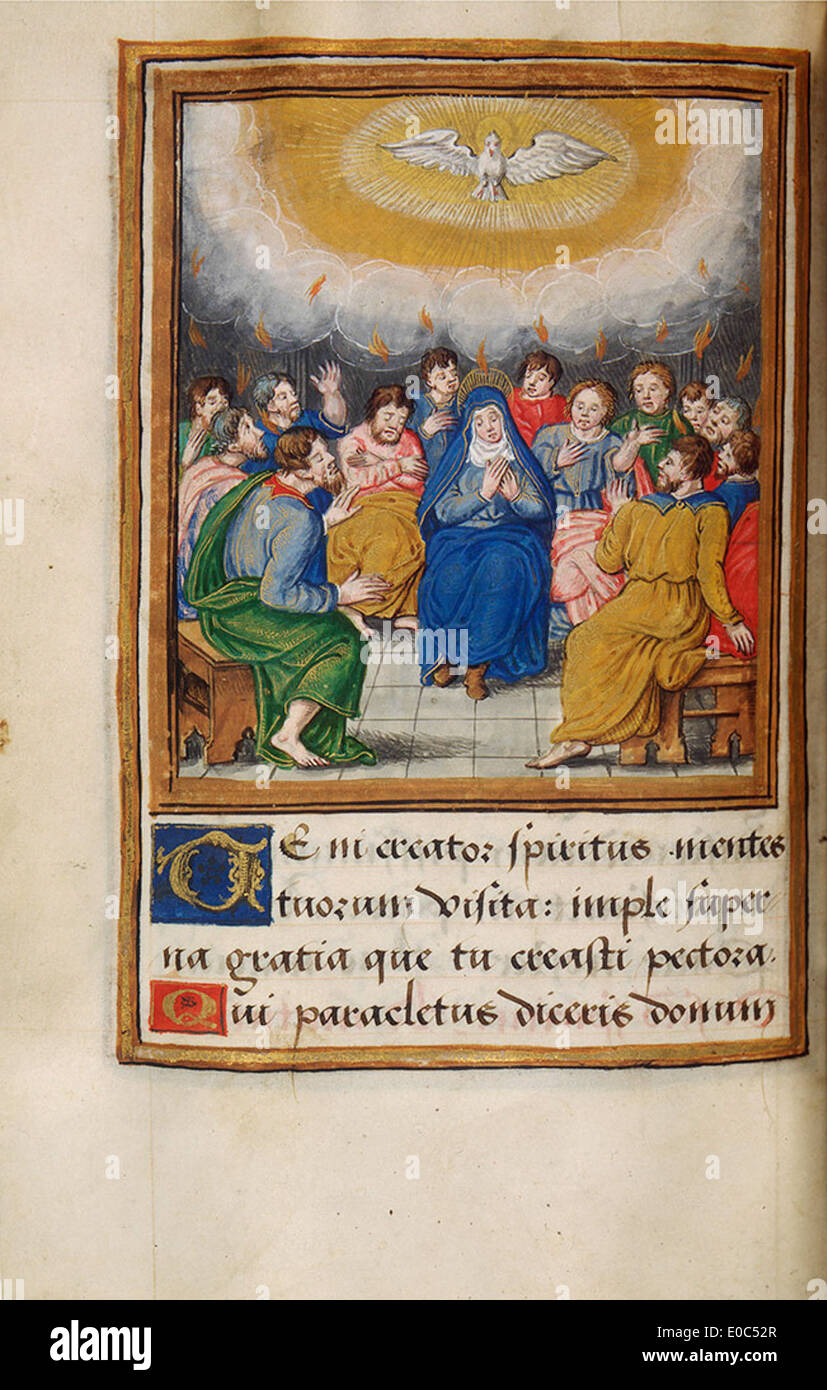 VE ni creator spiritus mentes
tuorum visita: imple super
na gratia que tu creasti pectora.
Qui paracletus diceris donum
alamy
www.alamy.com
E0C52R